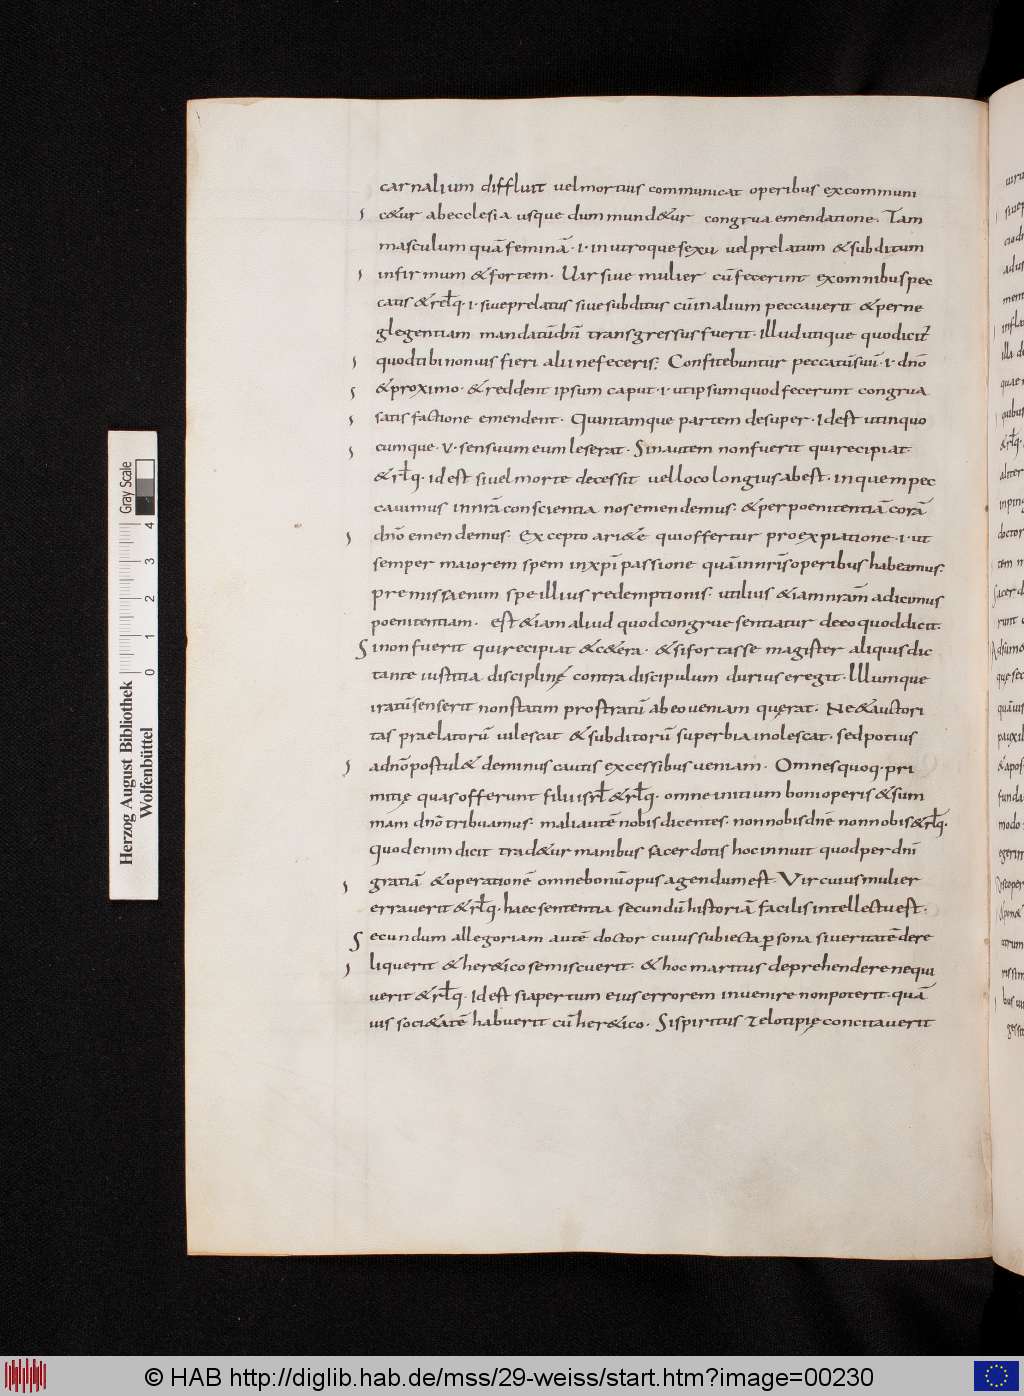 carnalium diffluit vel mortuis communicat operibus excommuni
c&ur ab ecclesia usque dum mund&ur congrua emendatione. Tam
masculum quā feminā .i. in utroque sexu vel prelatum & subditum
infirmum & fortem. Vir sive mulier cū fecerint ex omnibus pec
catis & rłq. i. sive prelatus sive subditus cū in alium peccaverit & per ne
glegentiam mandatū dnī transgressus fuerit. Illud utique quod dicit̄
quod tibi non vis fieri alii ne feceris; Confitebuntur peccatū suū .i. dnō
& proximo. & reddent ipsum caput .i. ut ipsum quod fecerunt congrua
satisfactione emendent. Quintamque partem desuper. Id est ut in quo
cumque .v. sensuum eum leserat. Sin autem non fuerit qui recipiat.
& rłq. id est si vel morte decessit vel loco longius abest. in quem pec
cavimus in nrā conscientia nos emendemus. & per poenitentiā corā
dnō emendemus. Excepto ari&e qui offertur pro expiatione .i. ut
semper maiorem spem in xpī passione quā in nrīs operibus habeamus;
premissa enim spe illius redemptionis. utilius &iam nrām adicimus
poenitentiam. est &iam aliud quod congrue sentiatur de eo quod dicit.
Si non fuerit qui recipiat & c&era. & si fortasse magister aliquis dic
tante iustitia disciplinę contra discipulum durius eregit. Illumque
iratū senserit non statim prostratū ab eo veniam quęrat. Ne & auctori
tas praelatorū vilescat & subditorū superbia inolescat. sed potius
ad dnō postul& de minus cautis excessibus veniam. Omnes quoq. pri
mitię quas offerunt filii isrł & rłq. omne initium boni operis & sum
mam dnō tribuamus. mali autē nobis dicentes. non nobis dnē non nobis & rłq.
Quod enim dicit trad&ur manibus sacerdotis hoc innuit quod per dnī
gratiā & operationē omne bonū opus agendum est. Vir cuius mulier
erraverit & rłq. haec sententia secundū historiā facilis intellectu est.
Secundum allegoriam autē doctor cuius subiecta ꝑsona si veritatē dere
liquerit & her&ico se miscuerit. & hoc maritus deprehendere nequi
verit & rłq. Id est si apertum eius errorem invenire non poterit. quā
vis soci&atē habuerit cū her&ico. Si spiritus zelotipię concitaverit
Herzog August Bibliothek
Wolfenbüttel
0 1 2 3 4
Gray Scale
© HAB http://diglib.hab.de/mss/29-weiss/start.htm?image=00230